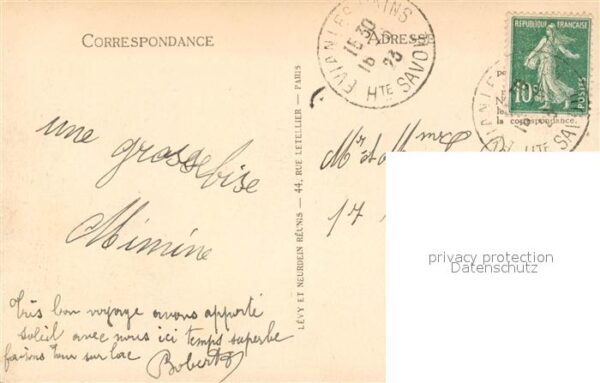 CORRESPONDANCE
ADRESSE
EVIAN LES BAINS
15 30
16
23
HTE SAVOIE
REPUBLIQUE FRANÇAISE
10c
POSTES
la correspondance.
une grosse bise
Mimine
Très bon voyage avons apporté
soleil avec nous ici temps superbe
faisons tour sur lac
Robert
LÉVY ET NEURDEIN RÉUNIS — 44, RUE LETELLIER — PARIS
Mr et Mme
17
privacy protection
Datenschutz